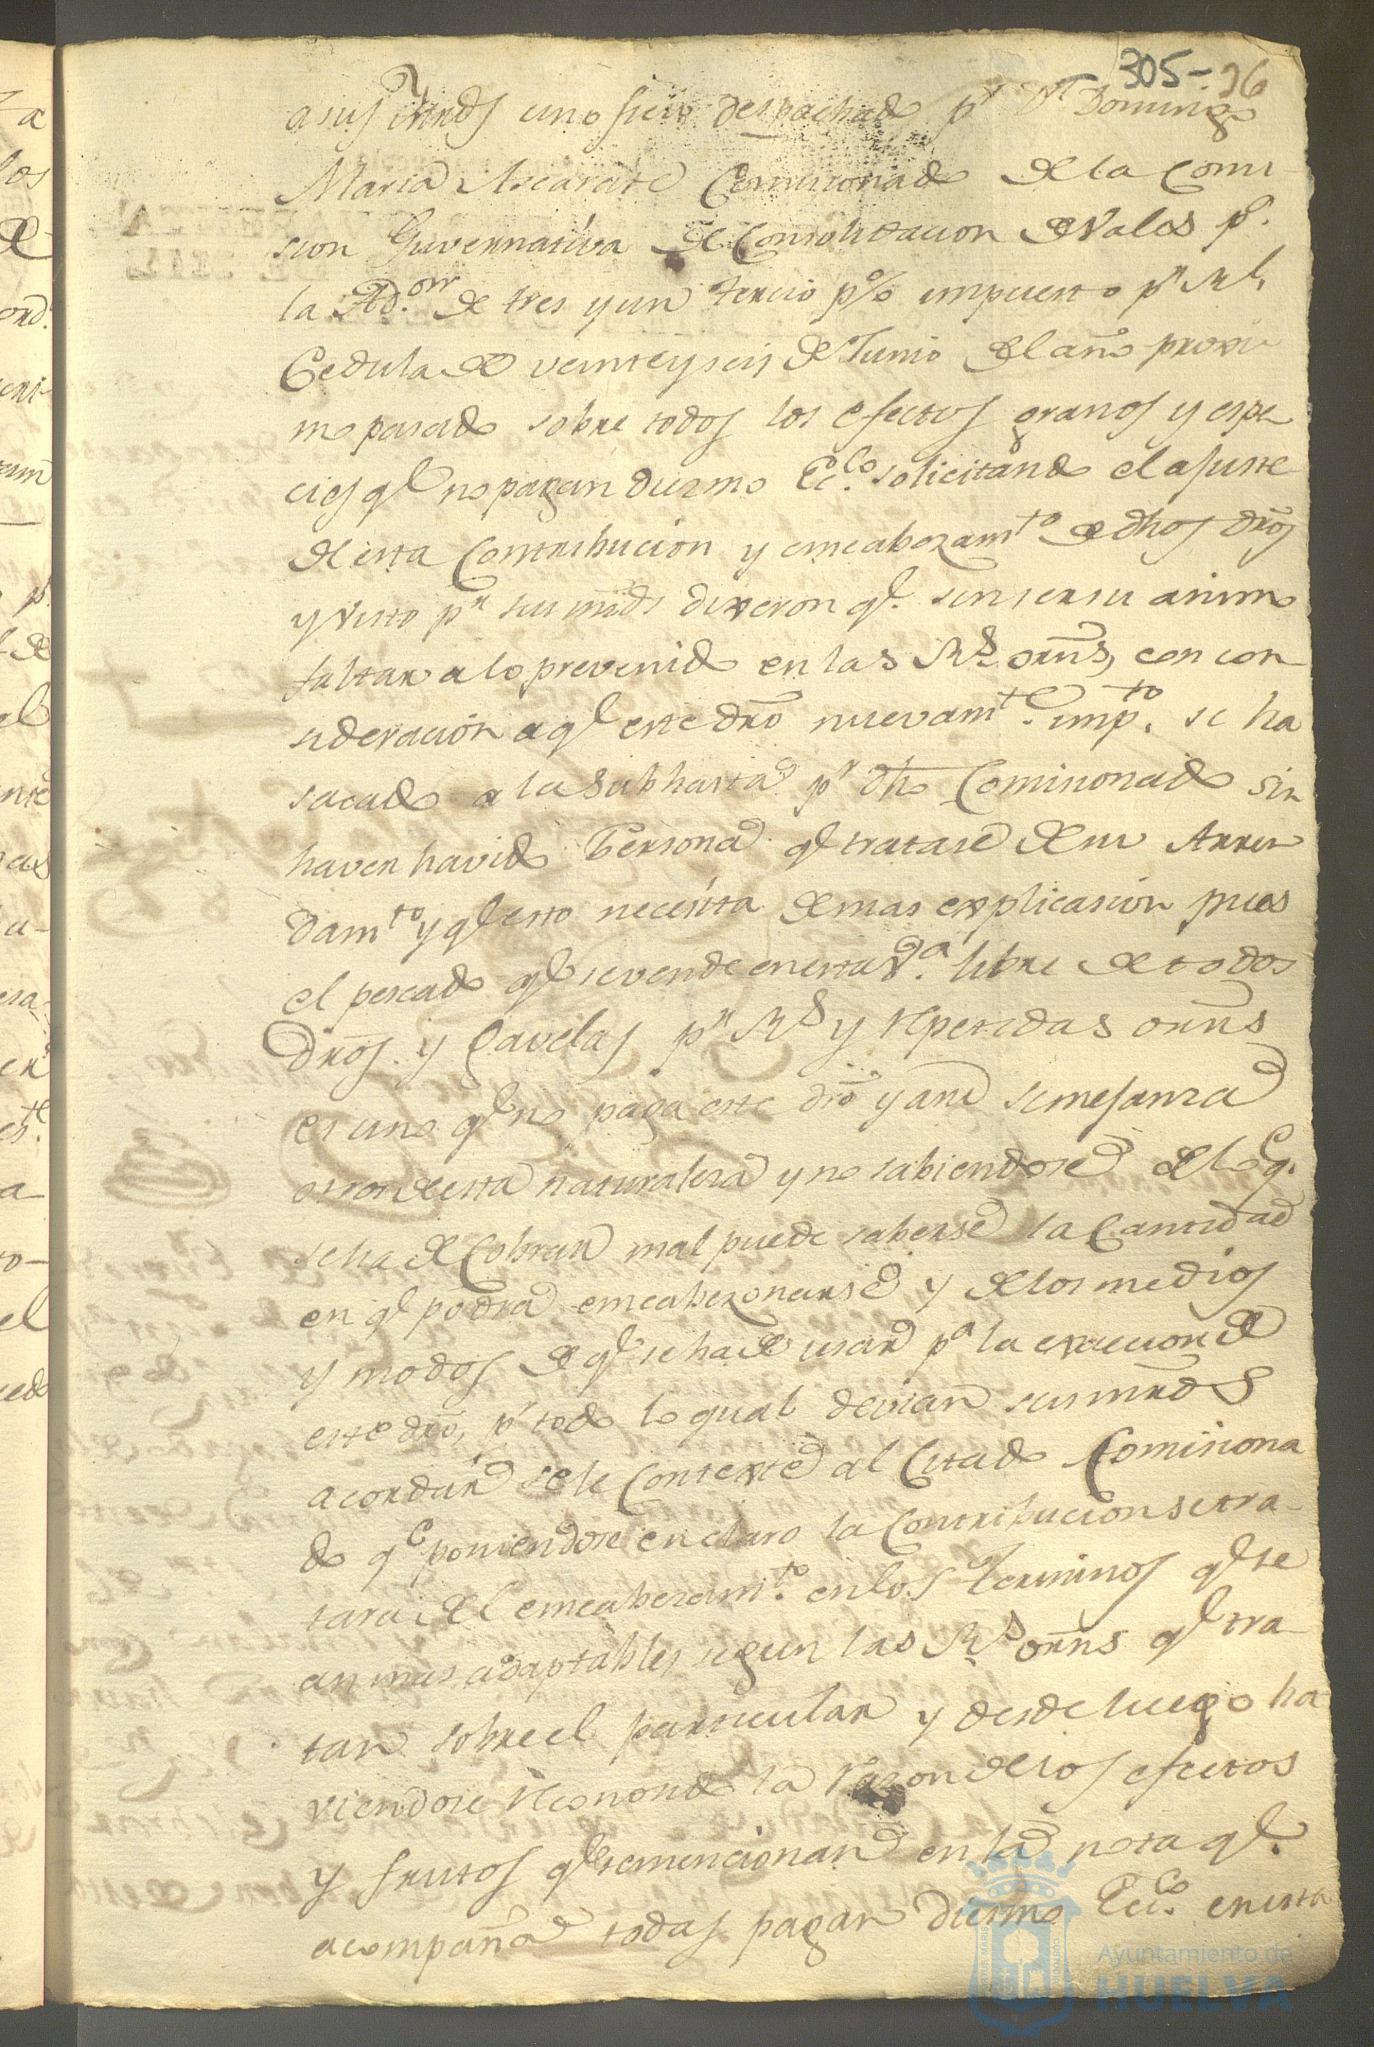 305-26
a sus mrds un oficio despachado pr Dn Domingo
Maria Ascarate Comisionado de la Comi-
sion Guvernativa de Consolidacion de Vales pa.
la Ad.on de tres y un tercio p% impuesto pr Rl.
Cedula de veinte y seis de Junio del año proxi
mo pasado sobre todos los efectos granos y espe
cies ql no pagan diezmo Ec.co solicitando el ajuste
de esta Contribucion y encabezamto de dhos dros
y visto pr sus mrds dixeron ql. sin ser su animo
faltar a lo prevenido en las Rs ornns, con con
sideracion a ql este dro nuevamte. impto. se ha
sacado a la Subhasta pr dho Comisionado sin
haver havido Persona ql tratase de su Arren
damto y ql esto necesita de mas explicasion pues
el pescado ql se vende en esta Va. libre de todos
Dros. y Gavelas pr Rs y repetidas ornns
es uno ql no paga este dro y a su semejanza
otros de esta naturaleza y no sabiendose de lo q.
se ha de Cobrar mal puede saberse la Cantidad
en ql podra encabezonarse y de los medios
y modos de ql se ha de usar pa la exaccion de
este dro, pr todo lo qual devian sus mrds
acordar se le Contexte al Citado Comisiona
do qe poniendose en claro la Contribucion se tra-
tara del encabezamto. en los terminos ql se
an mas adaptables segun las Rs ornns ql tra
tan sobre el particular y desde luego ha
viendose reconocido la razon de los efectos
y frutos ql se mencionan en la nota ql.
acompaña todas pagan diezmo Ecco. en esta
Ayuntamiento de
HUELVA